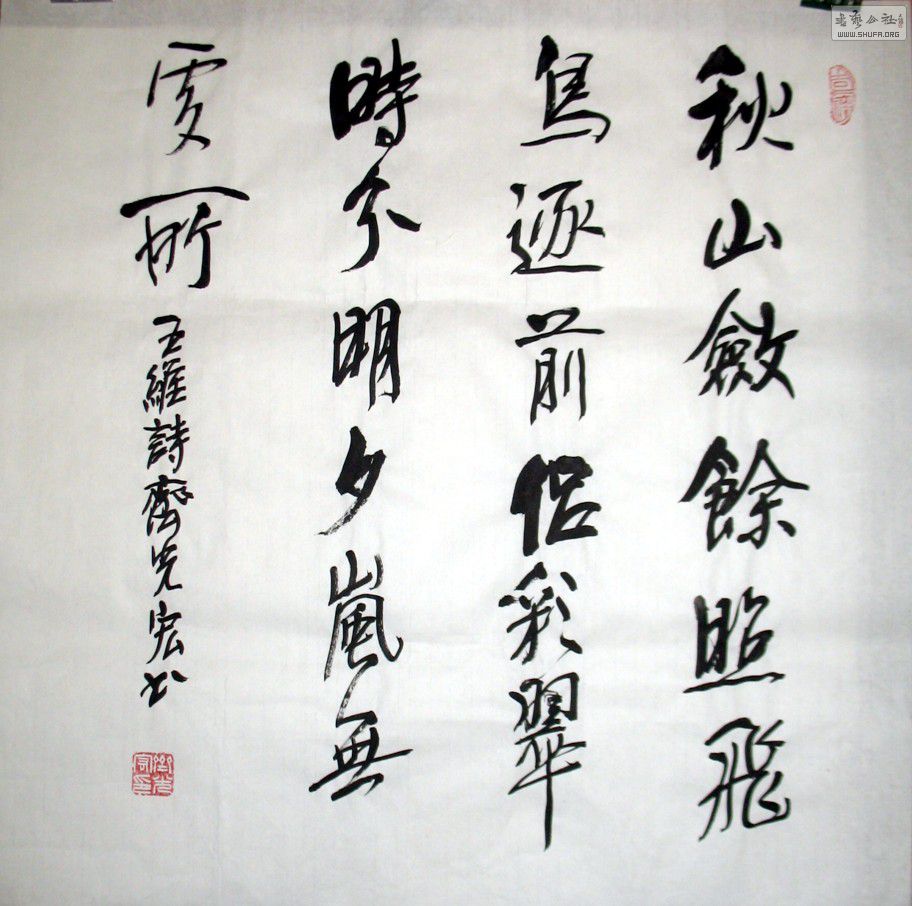 秋山斂餘照飛
鳥逐前侶彩翠
時分明夕嵐無
處所
王維詩齊光宏书
书艺公社
WWW.SHUFA.ORG